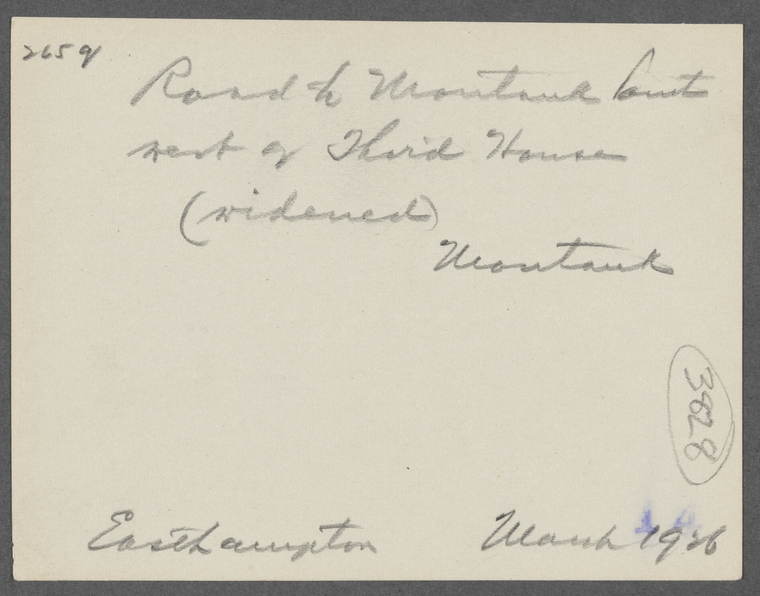 265 q
Road to Montauk but
west of Third House
(widened)
Montauk
3828
Easthampton March 1926